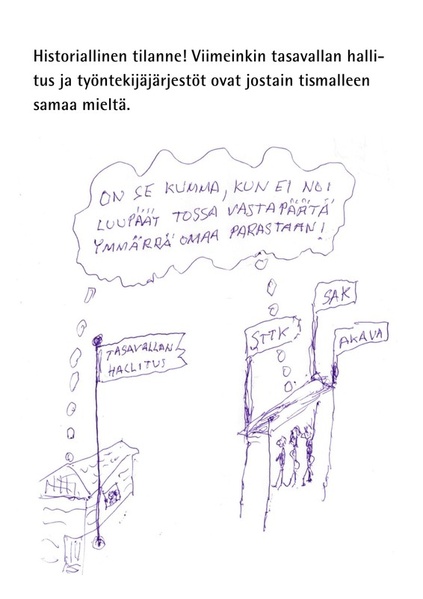 Historiallinen tilanne! Viimeinkin tasavallan halli-
tus ja työntekijäjärjestöt ovat jostain tismalleen
samaa mieltä.
ON SE KUMMA, KUN EI NOI
LUUPÄÄT TOSSA VASTAPÄÄTÄ
YMMÄRRÄ OMAA PARASTAAN!
TASAVALLAN
HALLITUS
STTK
SAK
AKAVA